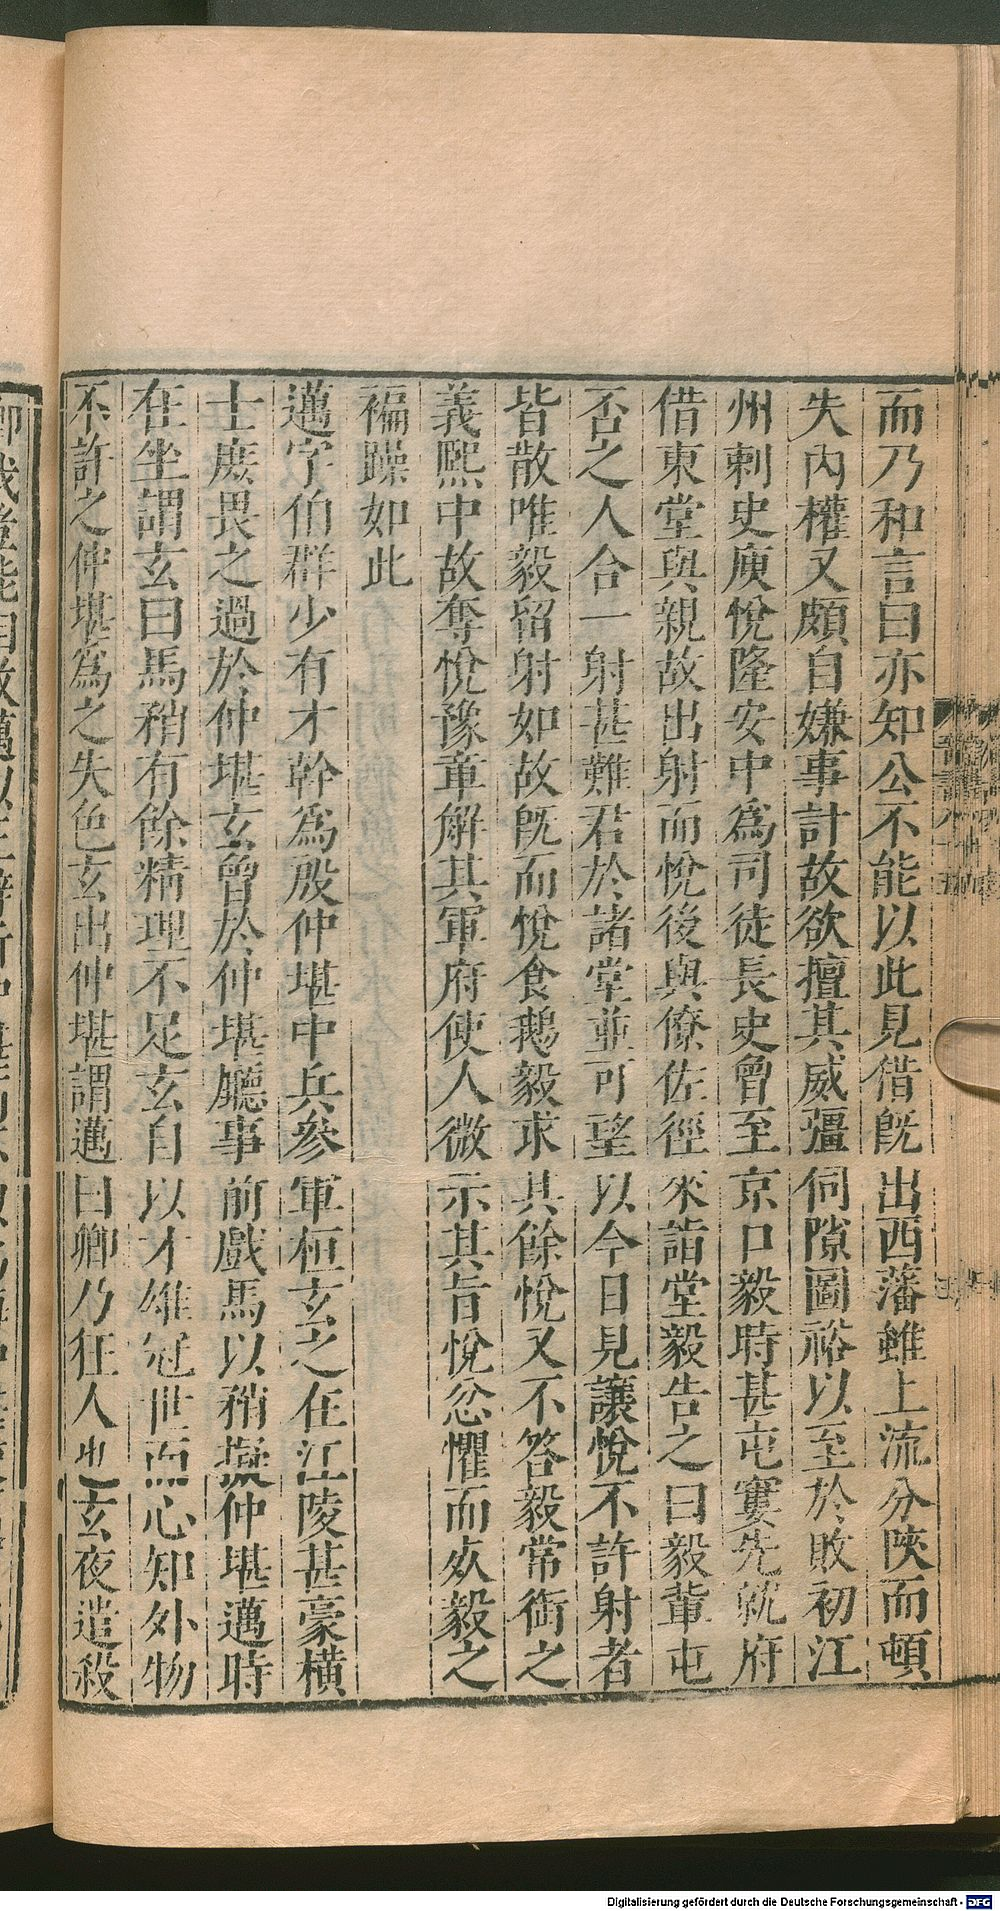 而乃和言曰亦知公不能以此見借旣出西藩雖上流分陝而頓
失內權又頗自嫌事計故欲擅其威彊伺隙圖裕以至於敗初江
州刺史庾悅隆安中爲司徒長史曾至京口毅時甚屯窶先就府
借東堂與親故出射而悅後與僚佐徑來詣堂毅告之曰毅輩屯
否之人合一射甚難君於諸堂並可望以今日見讓悅不許射者
皆散唯毅留射如故旣而悅食鵝毅求其餘悅又不答毅常銜之
義熙中故奪悅豫章解其軍府使人微示其旨悅忿懼而死毅之
褊躁如此
邁字伯群少有才幹爲殷仲堪中兵參軍桓玄之在江陵甚豪橫
士庶畏之過於仲堪玄曾於仲堪廳事前戲馬以矟擬仲堪邁時
在坐謂玄曰馬矟有餘精理不足玄自以才雄冠世而心知外物
不許之仲堪爲之失色玄出仲堪謂邁曰卿乃狂人也玄夜遣殺
Digitalisierung gefördert durch die Deutsche Forschungsgemeinschaft - DFG